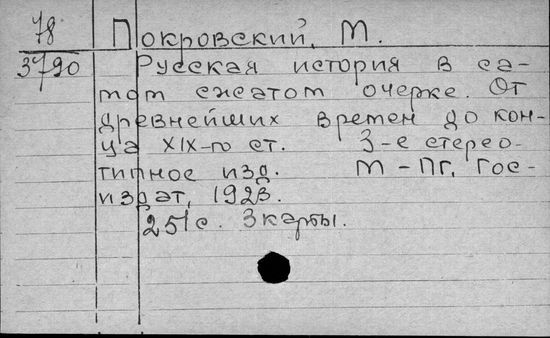 78
3790
Покровский, М.
Русская история в са-
мом сжатом очерке. От
древнейших времен до кон-
ца XIX-го ст. 3-е стерео-
типное изд. М-Пг, Гос-
издат, 1923.
251 с. 3 карты.